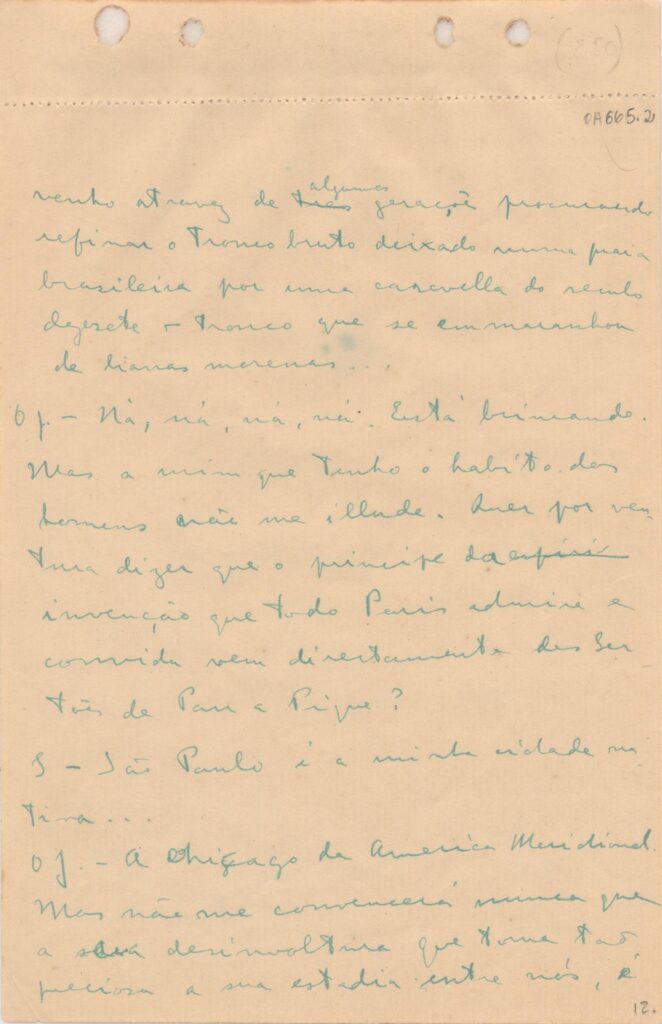 (250)
OA665.2
venho atravez de tres algumas gerações procurando
refinar o tronco bruto deixado numa praia
brasileira por uma caravella do seculo
dezesete – tronco que se emmaranhou
de lianas morenas...
O j. – Ná, ná, ná, ná. Está brincando.
Mas a mim que tenho o habito dos
homens não me illude. Quer por ven-
tura dizer que o principe da
invenção que todo Paris admira e
convida vem directamente dos Ser-
tões de Pau a Pique?
S – São Paulo é a minha cidade na-
tiva...
O j. – A Chicago da America Meridional.
Mas não me convencerá nunca que
a sua desinvoltura que torna tão
preciosa a sua estadia entre nós, é
12.